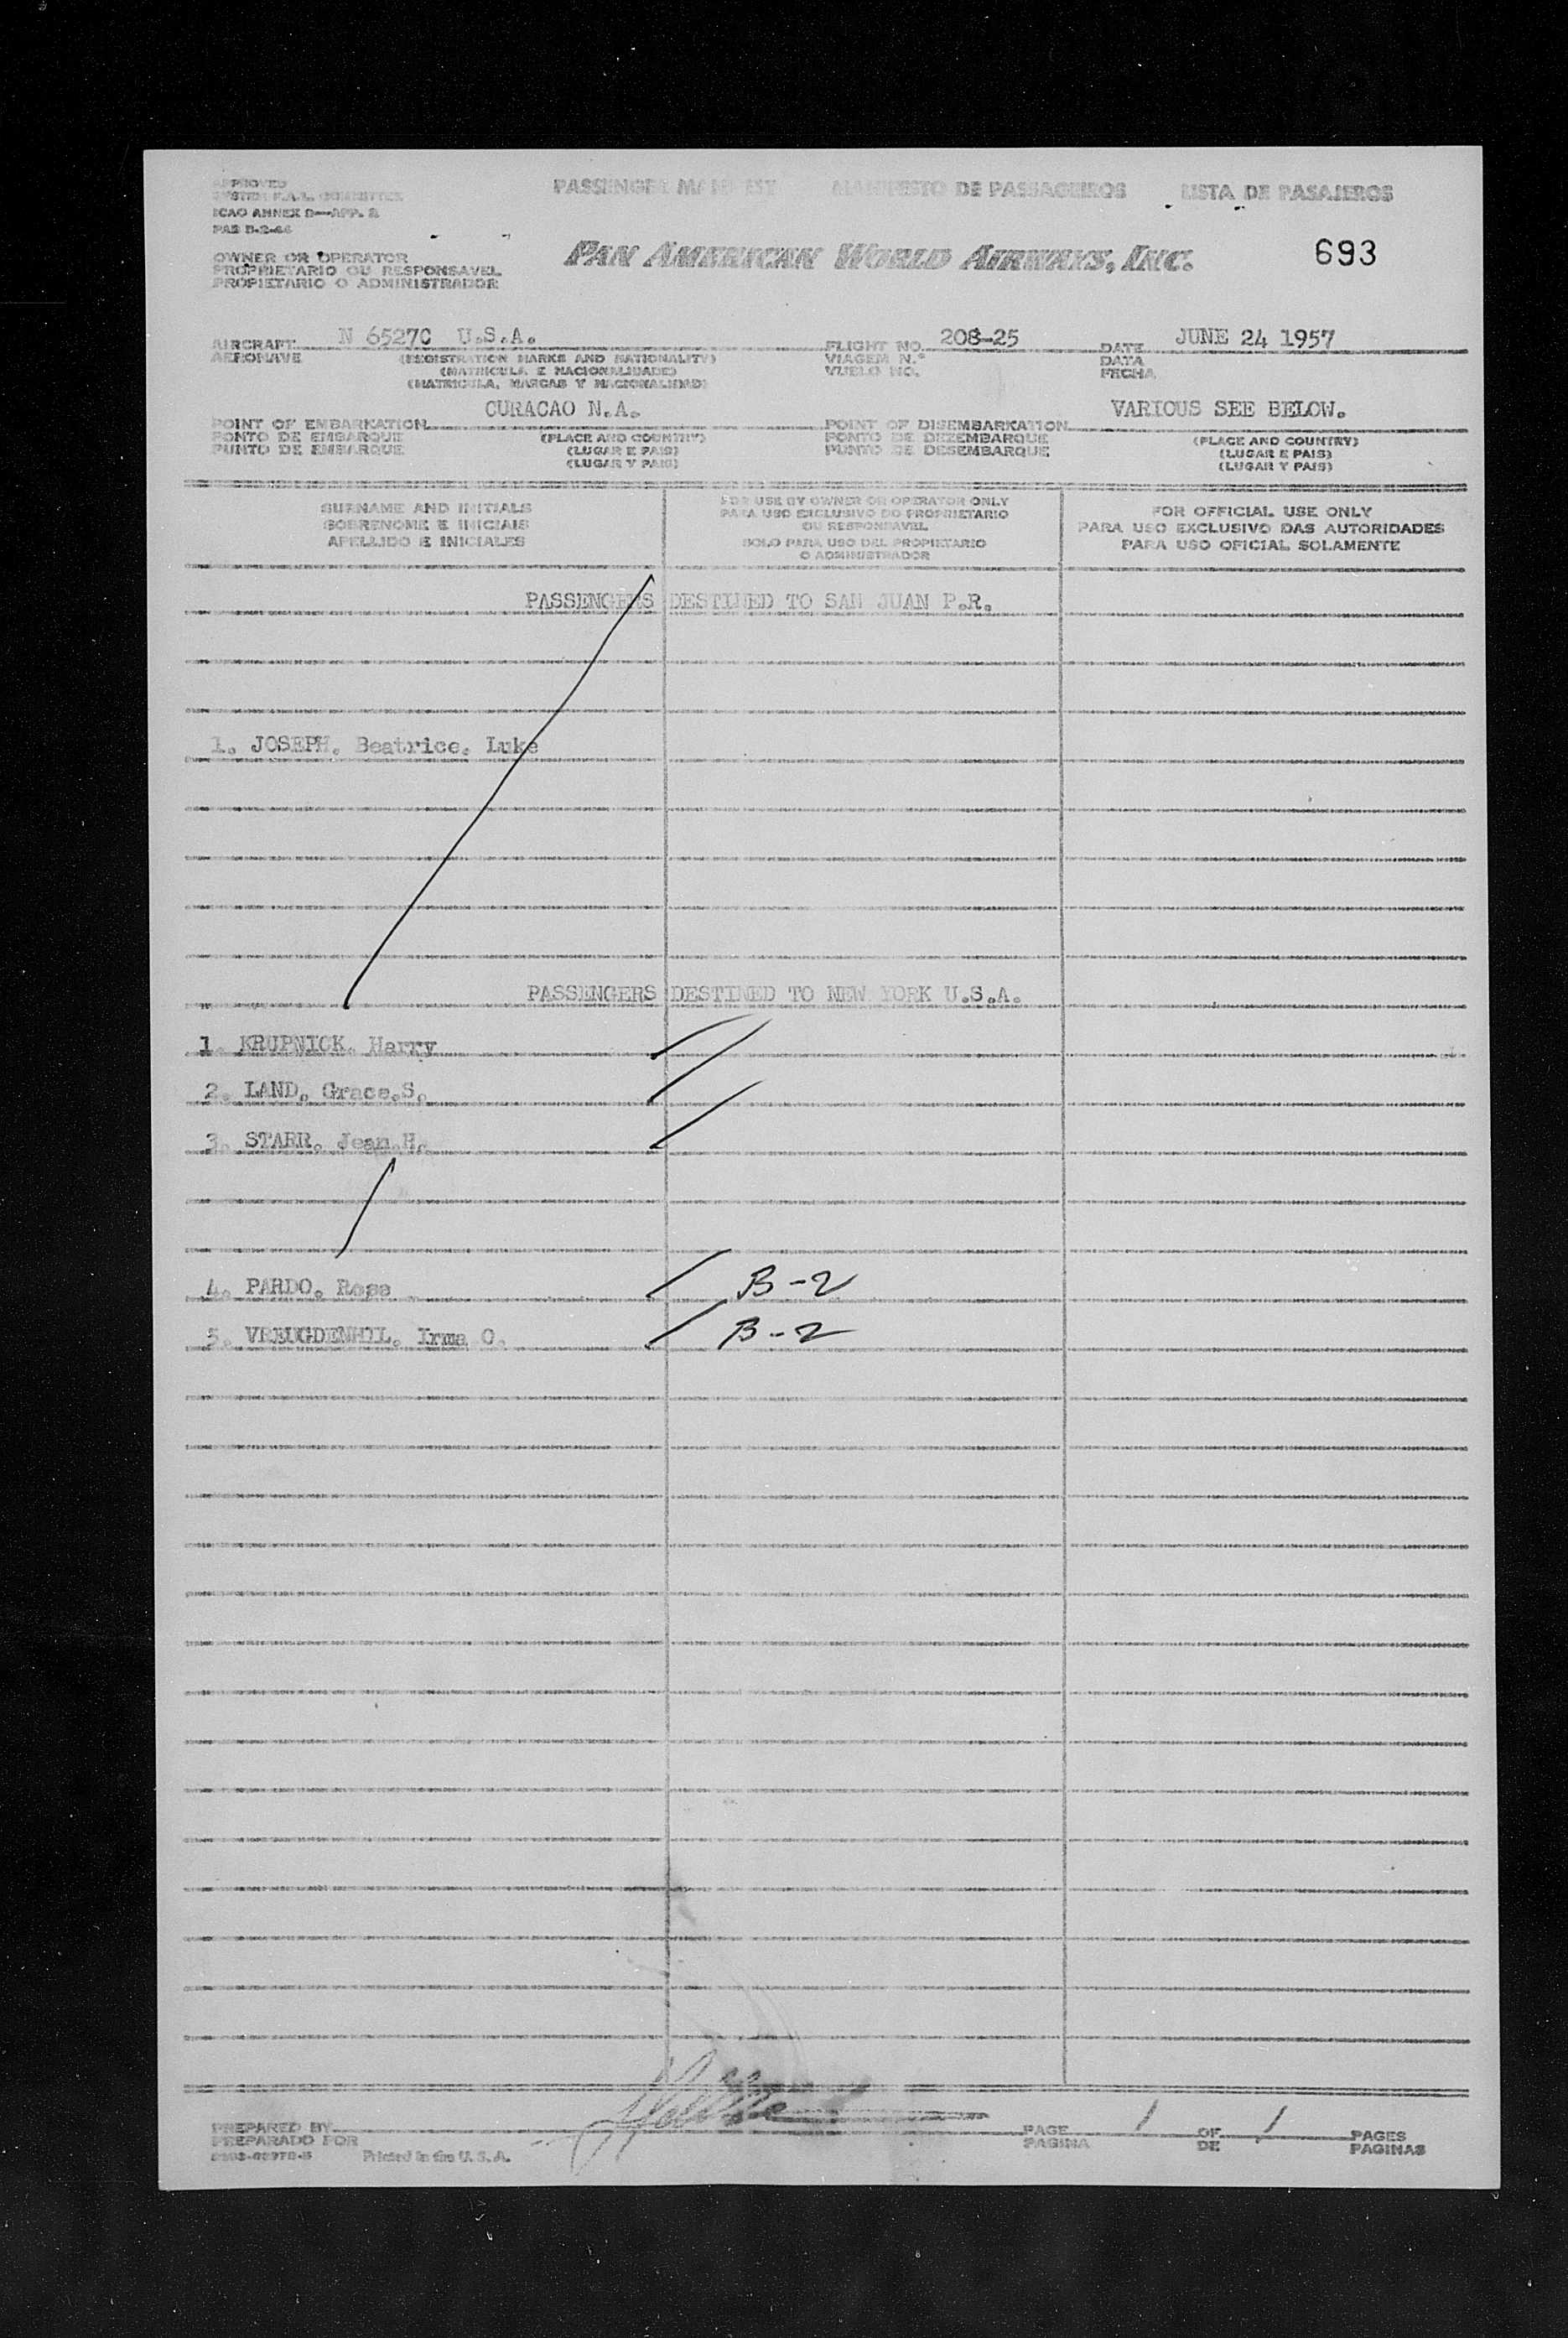 APPROVED
SYSTEM F.A.L. COMMITTEE
ICAO ANNEX 9—APP. 2
PASSENGER MANIFEST MANIFESTO DE PASSAGEIROS LISTA DE PASAJEROS
OWNER OR OPERATOR
PROPRIETARIO OU RESPONSAVEL
PROPIETARIO O ADMINISTRADOR
PAN AMERICAN WORLD AIRWAYS, INC.
693
AIRCRAFT N 6527C U.S.A. FLIGHT NO. 208-25 DATE JUNE 24 1957
AERONAVE (REGISTRATION MARKS AND NATIONALITY) VIAGEM N.º DATA
(MATRICULA E NACIONALIDADE) VUELO NO. FECHA
(MATRICULA, MARCAS Y NACIONALIDAD)
POINT OF EMBARKATION CURACAO N.A. POINT OF DISEMBARKATION VARIOUS SEE BELOW.
PONTO DE EMBARQUE (PLACE AND COUNTRY) PONTO DE DEZEMBARQUE (PLACE AND COUNTRY)
PUNTO DE EMBARQUE (LUGAR E PAIS) PUNTO DE DESEMBARQUE (LUGAR E PAIS)
(LUGAR Y PAIS) (LUGAR Y PAIS)
SURNAME AND INITIALS
SOBRENOME E INICIAIS
APELLIDO E INICIALES
FOR USE BY OWNER OR OPERATOR ONLY
PARA USO EXCLUSIVO DO PROPRIETARIO
OU RESPONSAVEL
SOLO PARA USO DEL PROPIETARIO
O ADMINISTRADOR
FOR OFFICIAL USE ONLY
PARA USO EXCLUSIVO DAS AUTORIDADES
PARA USO OFICIAL SOLAMENTE
PASSENGERS DESTINED TO SAN JUAN P.R.
1. JOSEPH. Beatrice. Luke
PASSENGERS DESTINED TO NEW YORK U.S.A.
1. KRUPNICK. Harry
2. LAND. Grace.S.
3. STARR. Jean.H.
4. PARDO. Rosa B-2
5. VREUGDENHIL. Irma O. B-2
PREPARED BY PAGE 1 OF 1 PAGES
PREPARADO POR PAGINA DE PAGINAS
Printed in the U. S. A.